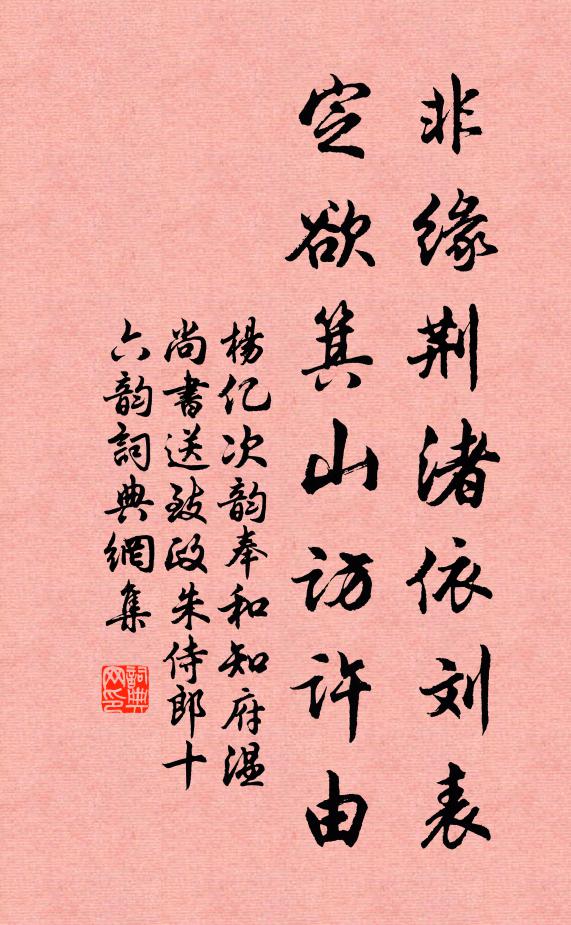 非缘荆渚依刘表
定欲箕山访许由
杨亿次韵奉和知府温
尚书送致政朱侍郎十
六韵词典網集
詞典
网印